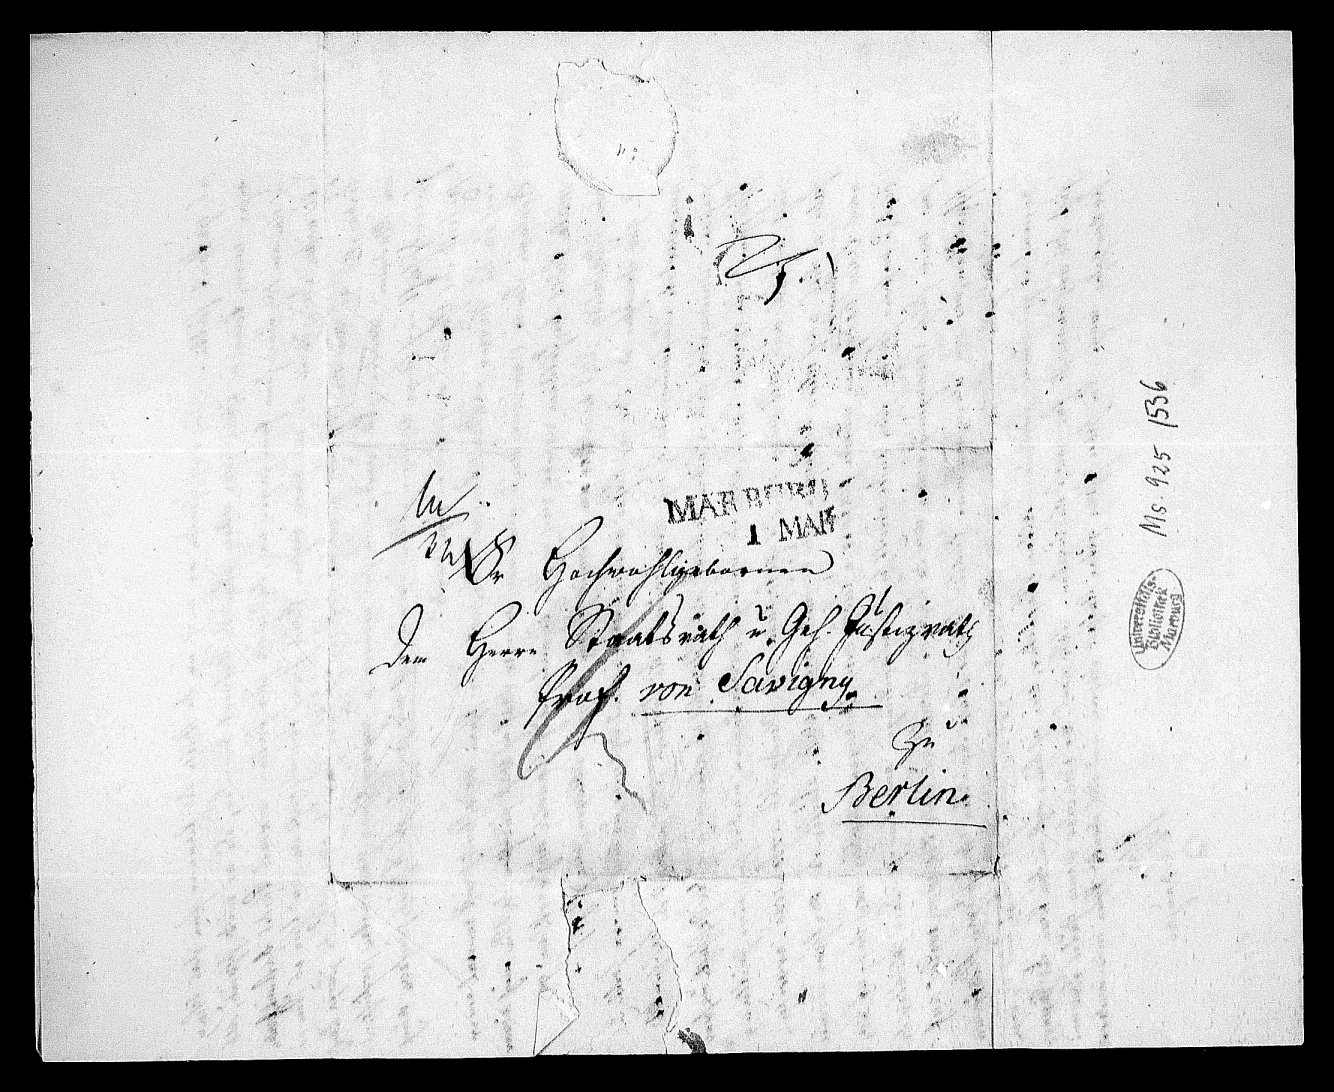 MARBURG
1 MAR
An
Sr Hochwohlgebornen
dem Herrn Staatsrath u. Geh. Justizrath
Prof. von Savigny
zu
Berlin.
Ms. 925 1536
Universitäts-
Bibliothek
Marburg